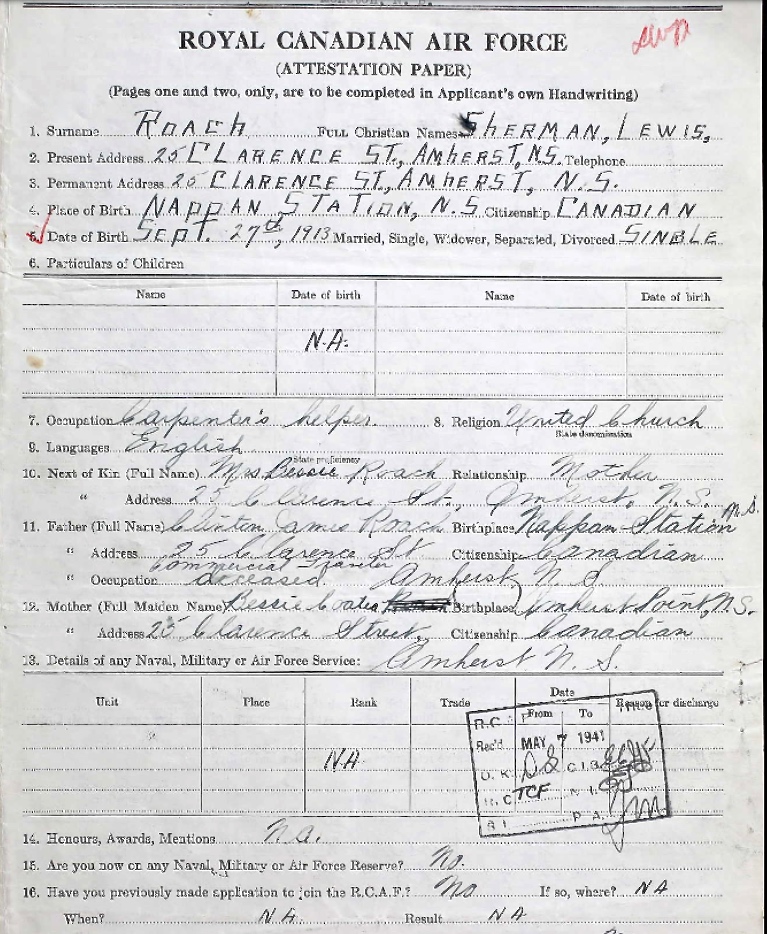 ROYAL CANADIAN AIR FORCE
(ATTESTATION PAPER)
(Pages one and two, only, are to be completed in Applicant's own Handwriting)
1. Surname ROACH FULL Christian Names SHERMAN, LEWIS,
2. Present Address 25 CLARENCE ST., AMHERST, N.S. Telephone
3. Permanent Address 25 CLARENCE ST., AMHERST, N.S.
4. Place of Birth NAPPAN STATION, N.S. Citizenship CANADIAN
5. Date of Birth SEPT. 27th, 1913 Married, Single, Widower, Separated, Divorced SINGLE
6. Particulars of Children
Name Date of birth Name Date of birth
N.A.
7. Occupation Carpenter's helper. 8. Religion United Church
State denomination
9. Languages English
State proficiency
10. Next of Kin (Full Name) Mrs Bessie Roach Relationship Mother
" Address 25 Clarence St., Amherst, N.S.
11. Father (Full Name) Clinton James Roach Birthplace Nappan Station N.S.
" Address 25 Clarence St Citizenship Canadian
Commercial Traveler
" Occupation deceased. Amherst N.S
12. Mother (Full Maiden Name) Bessie Coates Birthplace Amherst Point, N.S.
" Address 25 Clarence Street, Citizenship Canadian
13. Details of any Naval, Military or Air Force Service: Amherst N.S.
Unit Place Rank Trade Date From To Reason for discharge
NA
R.C.
Rec'd MAY 7 1941
O.K. C.I.B.
R.C. TCF N.I.
P.A.
14. Honours, Awards, Mentions N.a.
15. Are you now on any Naval, Military or Air Force Reserve? No.
16. Have you previously made application to join the R.C.A.F.? No If so, where? NA
When? NA Result NA